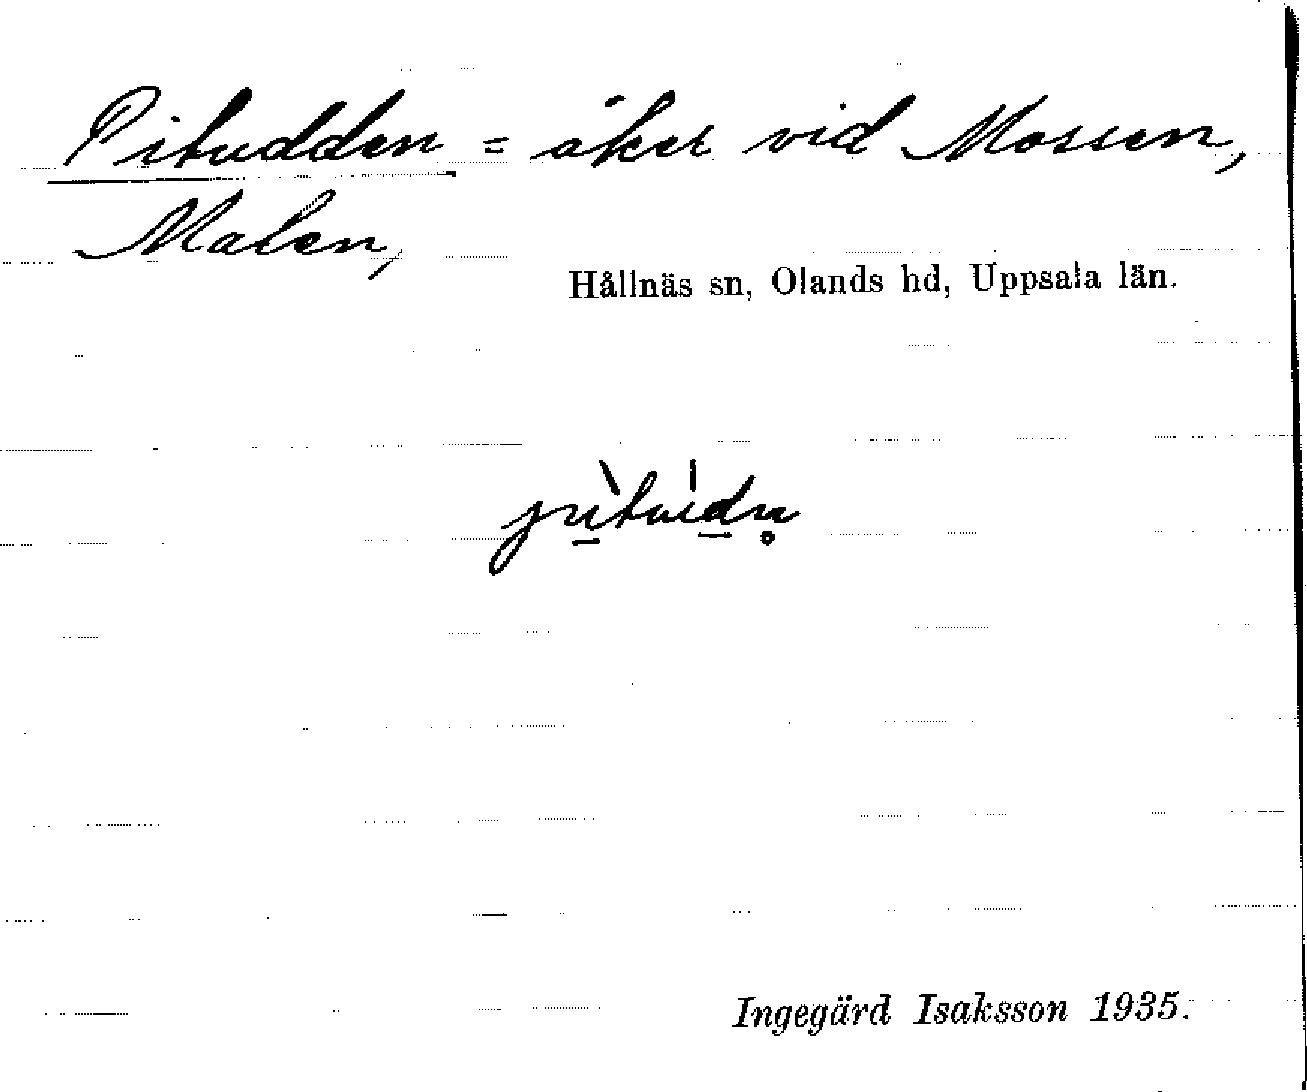 Pitudden = åker vid Mossen,
Malen,
Hållnäs sn, Olands hd, Uppsala län.
Ingegärd Isaksson 1935.